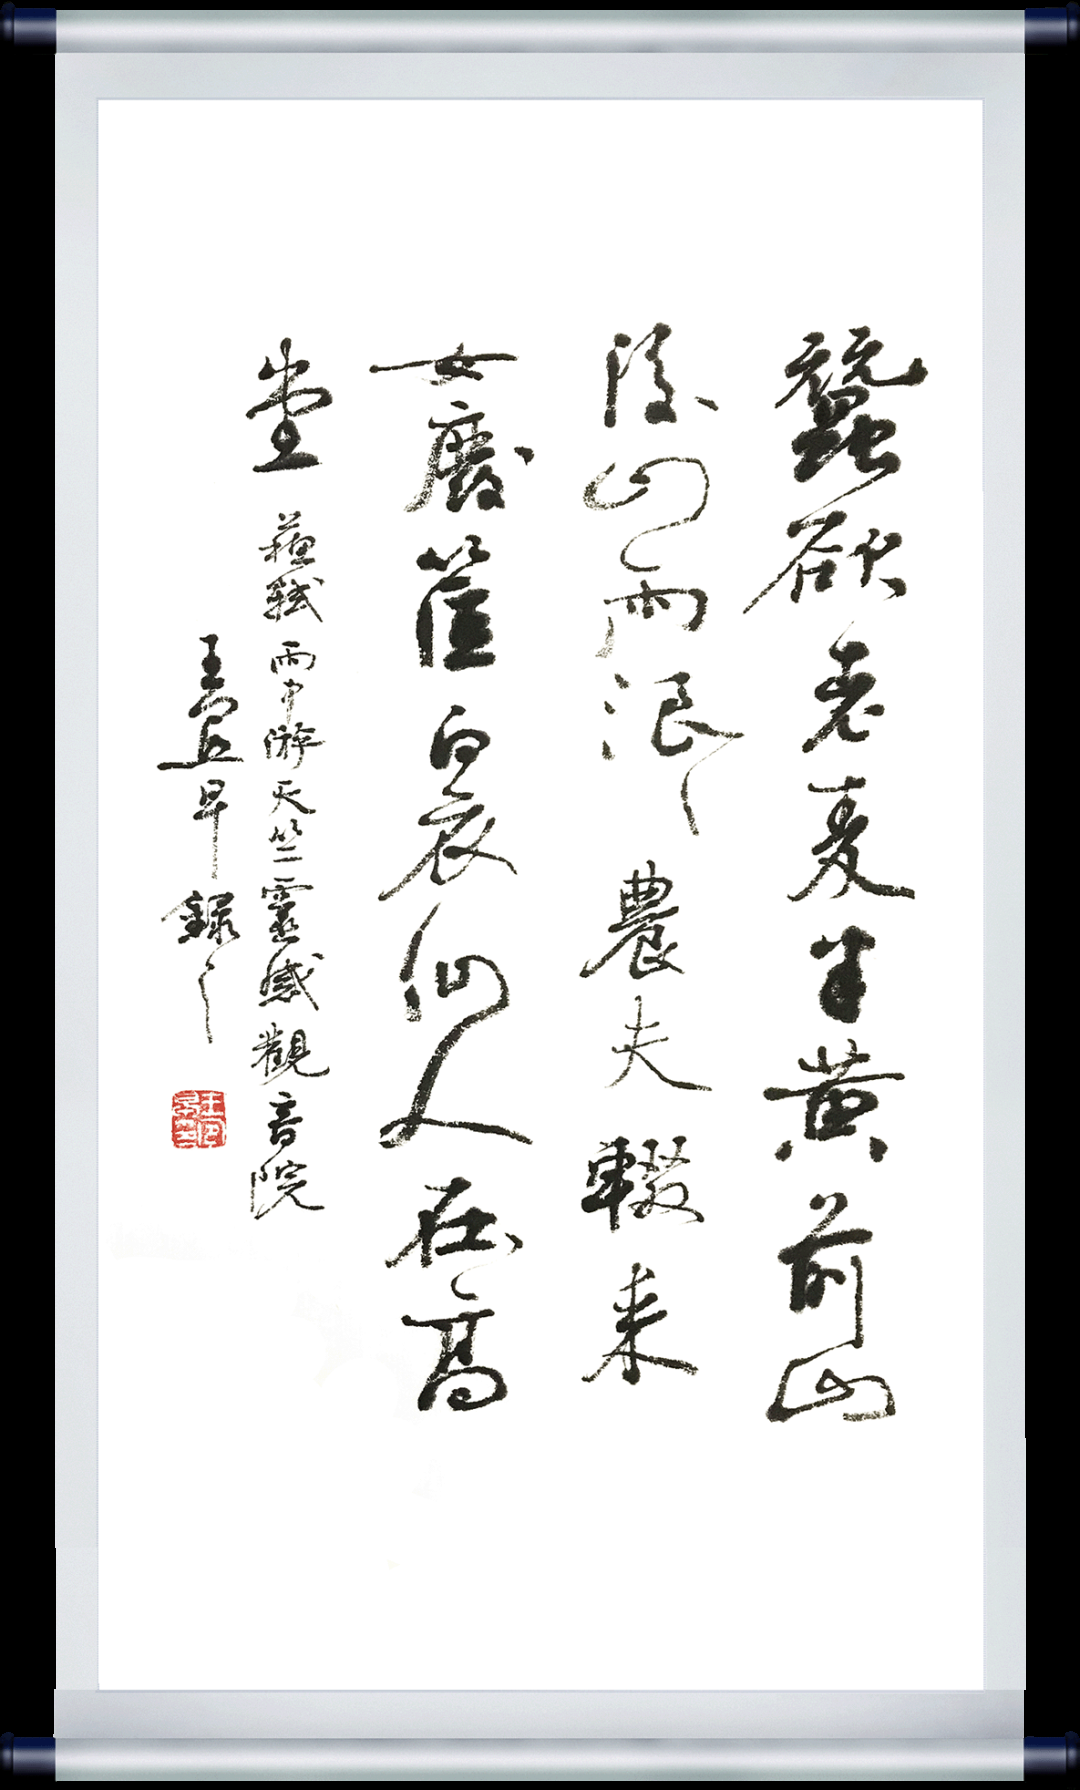 蠶欲老麦半黄前山
後山雨浪々農夫輟耒
女廢筐白衣仙人在高
堂 蘇軾雨中游天竺靈感觀音院
王早録之